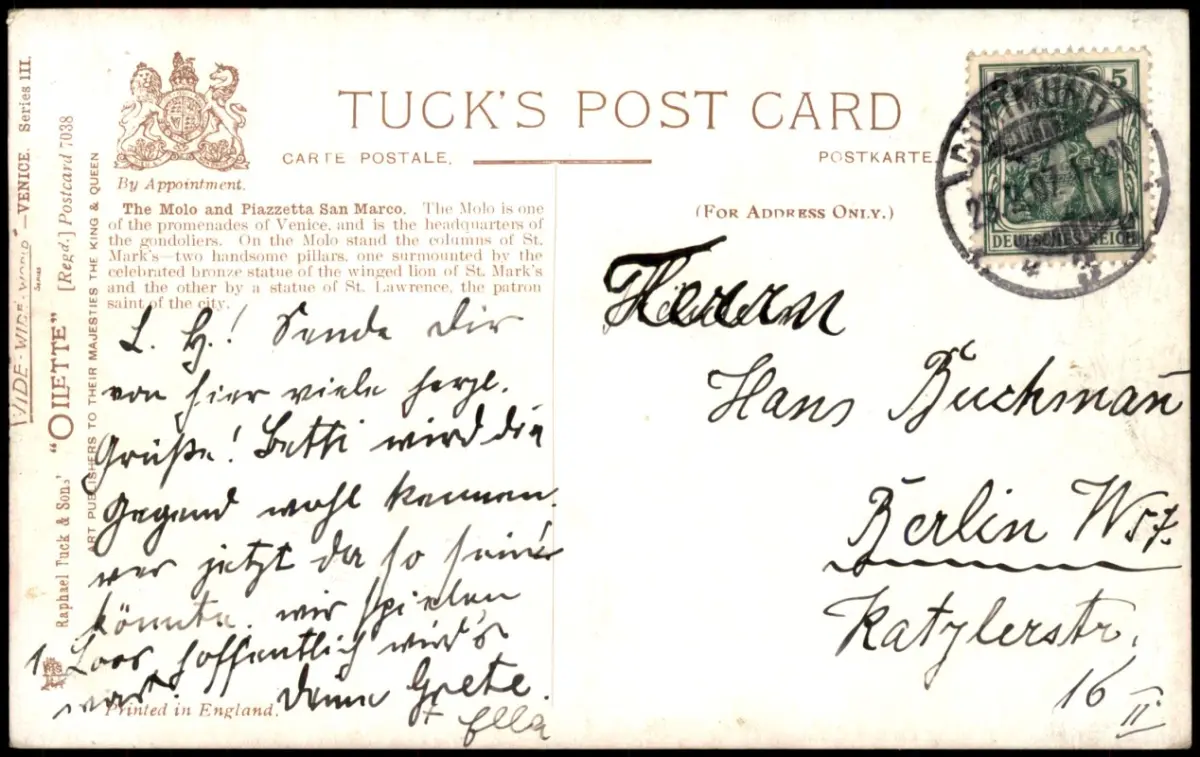 TUCK'S POST CARD
CARTE POSTALE. POSTKARTE.
By Appointment.
(FOR ADDRESS ONLY.)
The Molo and Piazzetta San Marco. The Molo is one
of the promenades of Venice, and is the headquarters of
the gondoliers. On the Molo stand the columns of St.
Mark's—two handsome pillars, one surmounted by the
celebrated bronze statue of the winged lion of St. Mark's
and the other by a statue of St. Lawrence, the patron
saint of the city.
L. H.! Sende Dir
von hier viele herzl.
Grüße! Betti wird die
Gegend wohl kennen.
wer jetzt da so sein
könnte. wir spielen
1. Loos hoffentlich wird's
was! Deine Grete.
+ Ella
Printed in England.
Herrn
Hans Buchman̄
Berlin W57.
Katzlerstr.
16 II
5
DEUTSCHES REICH
DORTMUND
WIDE-WIDE-WORLD SERIES —VENICE. Series III.
"OILETTE" [Regd.] Postcard 7038
Raphael Tuck & Sons'
ART PUBLISHERS TO THEIR MAJESTIES THE KING & QUEEN